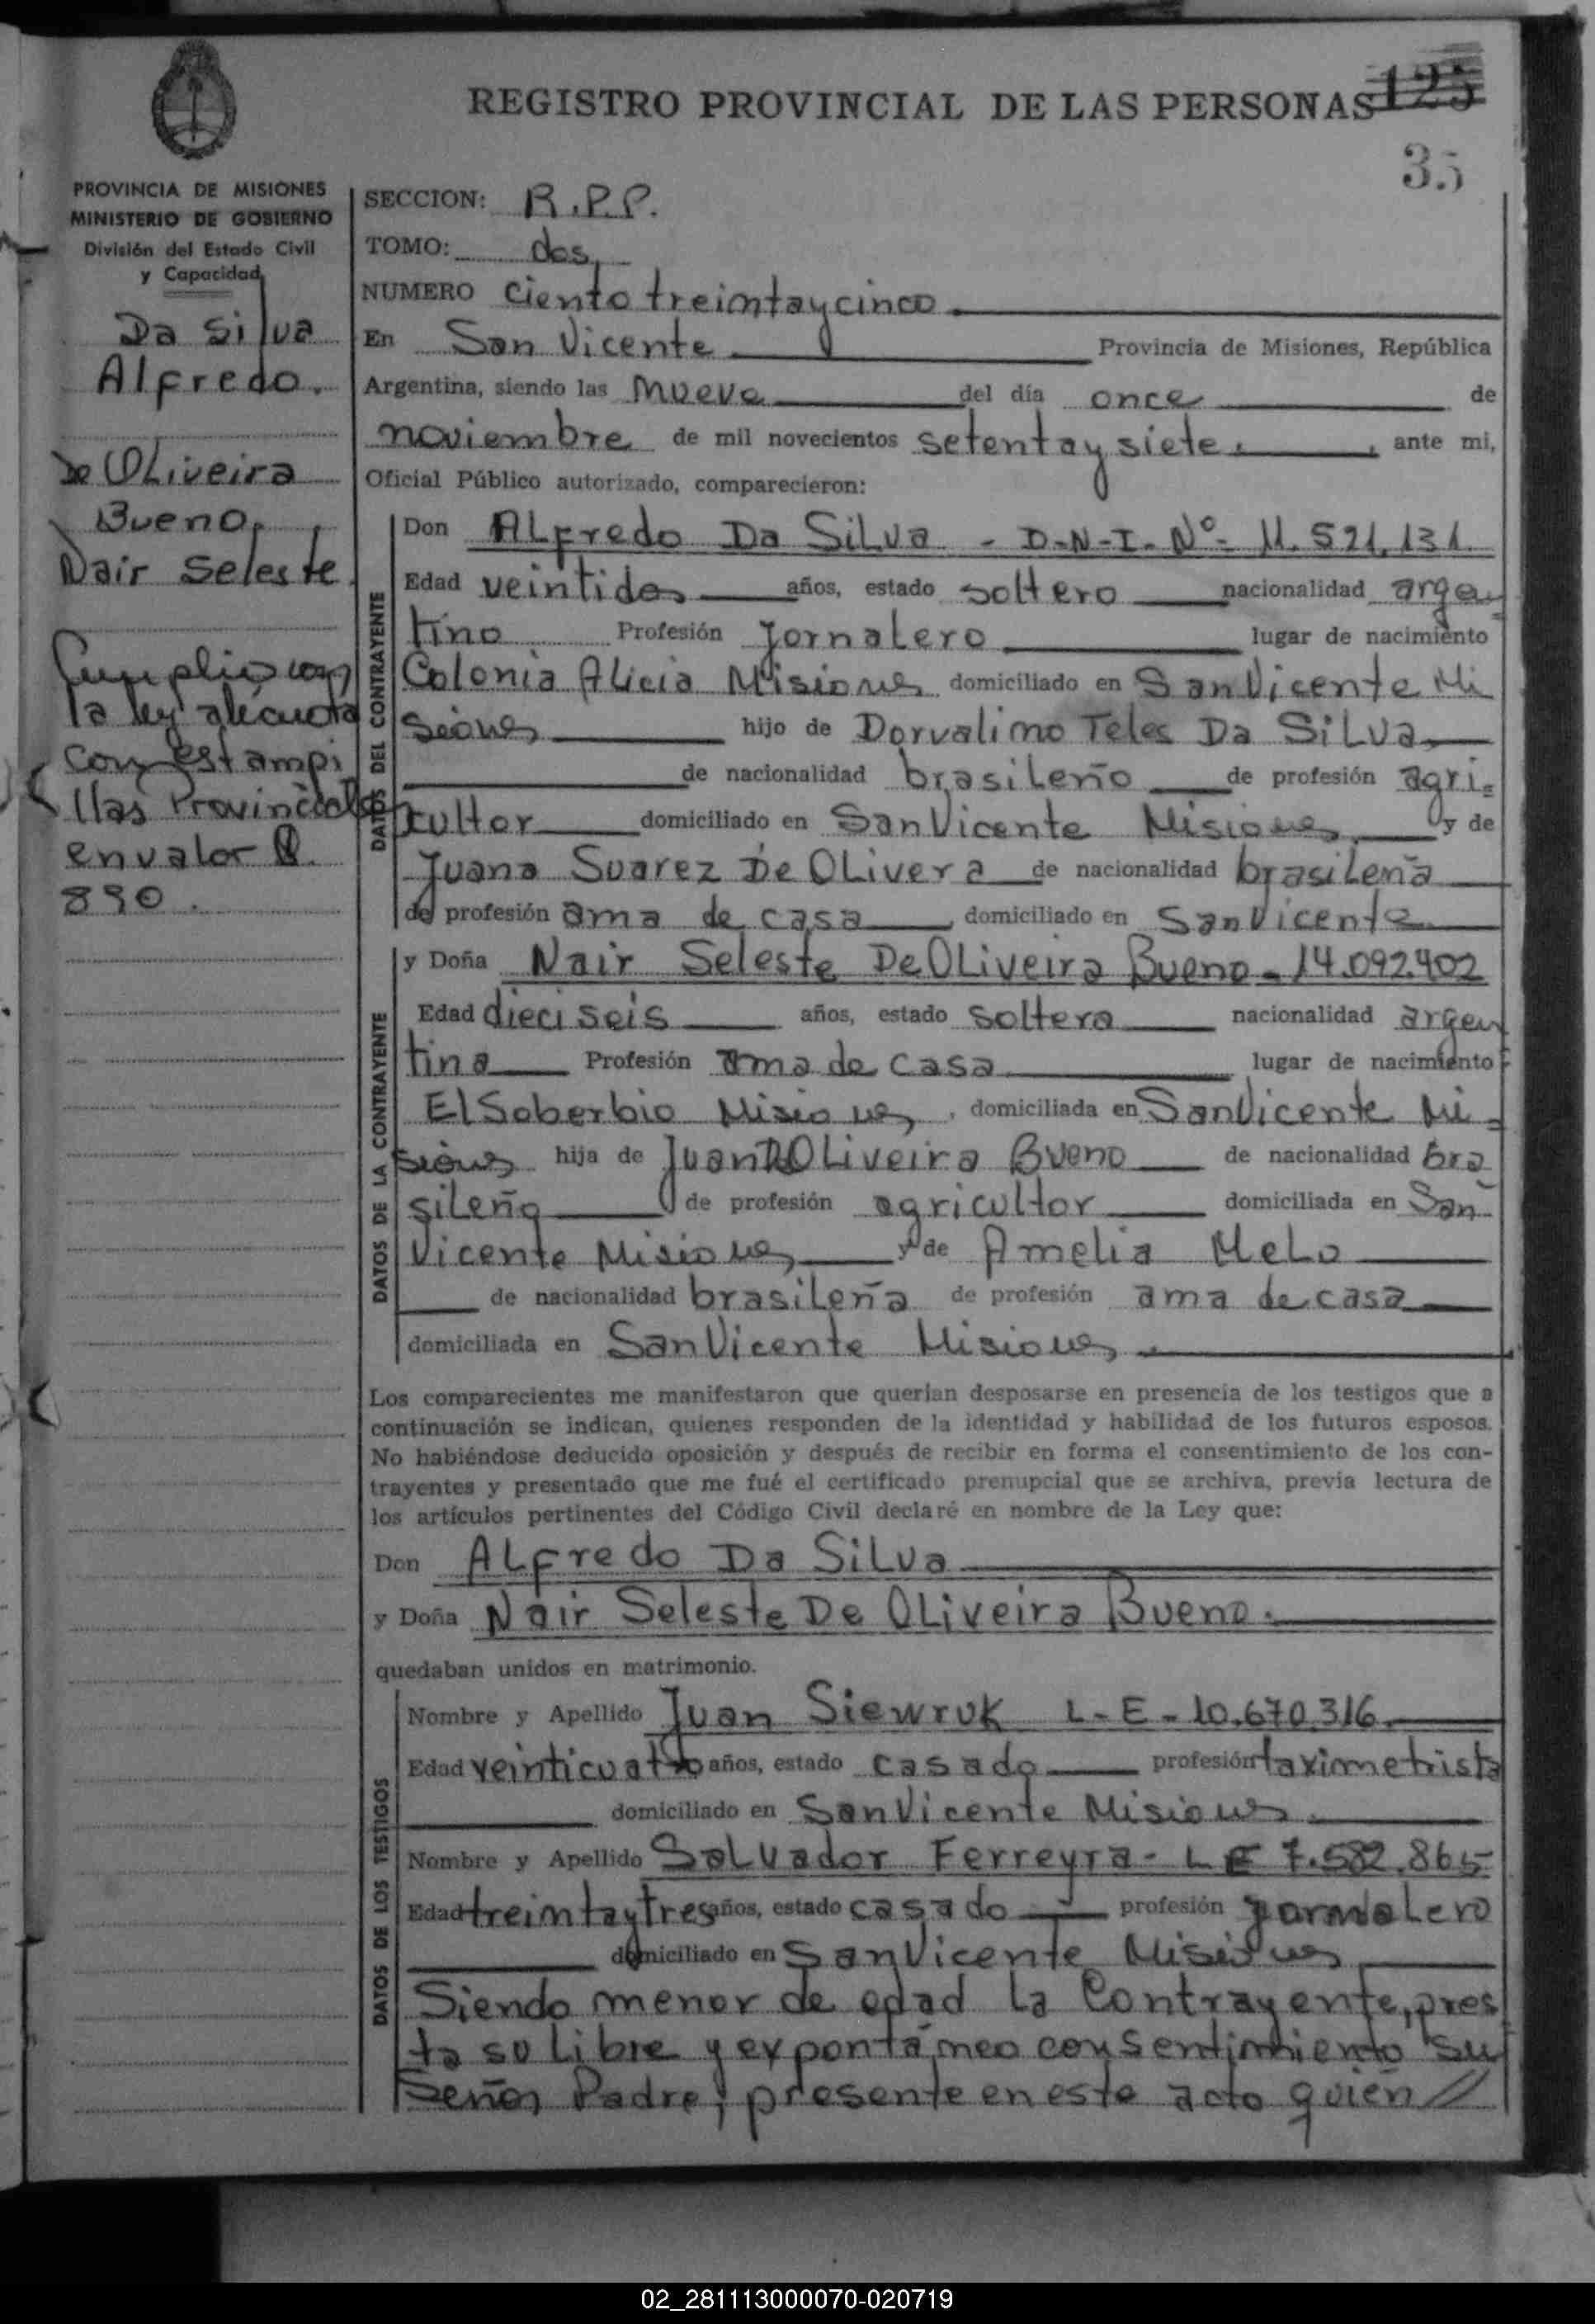 REGISTRO PROVINCIAL DE LAS PERSONAS
125
35
PROVINCIA DE MISIONES
MINISTERIO DE GOBIERNO
División del Estado Civil
y Capacidad
Da Silva
Alfredo.
De OLiveira
Bueno,
Nair Seleste
Cumplio con
la ley alicuota
con estampi
llas Provinciales
en valor $.
890.
SECCION: R.P.P.
TOMO: dos,
NUMERO ciento treintaycinco
En San Vicente Provincia de Misiones, República
Argentina, siendo las nueve del día once de
noviembre de mil novecientos setentaysiete, ante mi,
Oficial Público autorizado, comparecieron:
DATOS DEL CONTRAYENTE
Don ALfredo Da SiLva - D-N-I- Nº- 11.521.131
Edad veintidos años, estado soltero nacionalidad argen
tino Profesión JornaLero lugar de nacimiento
Colonia ALicia Misiones domiciliado en San Vicente Mi
siones hijo de Dorvalino Teles Da SiLva
de nacionalidad brasiLeño de profesión agri-
cultor domiciliado en San Vicente Misiones y de
Juana Suarez De OLivera de nacionalidad brasiLeña
de profesión ama de casa, domiciliado en San Vicente
DATOS DE LA CONTRAYENTE
y Doña Nair Seleste De OLiveira Bueno - 14.092.402
Edad dieciseis años, estado soltera nacionalidad argen
tina Profesión ama de casa lugar de nacimiento
El Soberbio Misiones, domiciliada en San Vicente Mi-
siones hija de Juan De OLiveira Bueno de nacionalidad bra
sileña de profesión agricultor domiciliada en San
Vicente Misiones y de Amelia MeLo
de nacionalidad brasiLeña de profesión ama de casa
domiciliada en San Vicente Misiones
Los comparecientes me manifestaron que querían desposarse en presencia de los testigos que a
continuación se indican, quienes responden de la identidad y habilidad de los futuros esposos.
No habiéndose deducido oposición y después de recibir en forma el consentimiento de los con-
trayentes y presentado que me fué el certificado prenupcial que se archiva, previa lectura de
los artículos pertinentes del Código Civil declaré en nombre de la Ley que:
Don ALfredo Da SiLva
y Doña Nair Seleste De OLiveira Bueno.
quedaban unidos en matrimonio.
DATOS DE LOS TESTIGOS
Nombre y Apellido Juan Siewruk L-E-10.670.316.
Edad veinticuatro años, estado casado profesión taximetrista
domiciliado en San Vicente Misiones
Nombre y Apellido SaLvador Ferreyra - LE 7.582.865
Edad treintaytres años, estado casado profesión jornaLero
domiciliado en San Vicente Misiones
Siendo menor de edad La Contrayente, pres
ta su Libre y expontáneo consentimiento su
Señor Padre, presente en este acto quien //
02_281113000070-020719